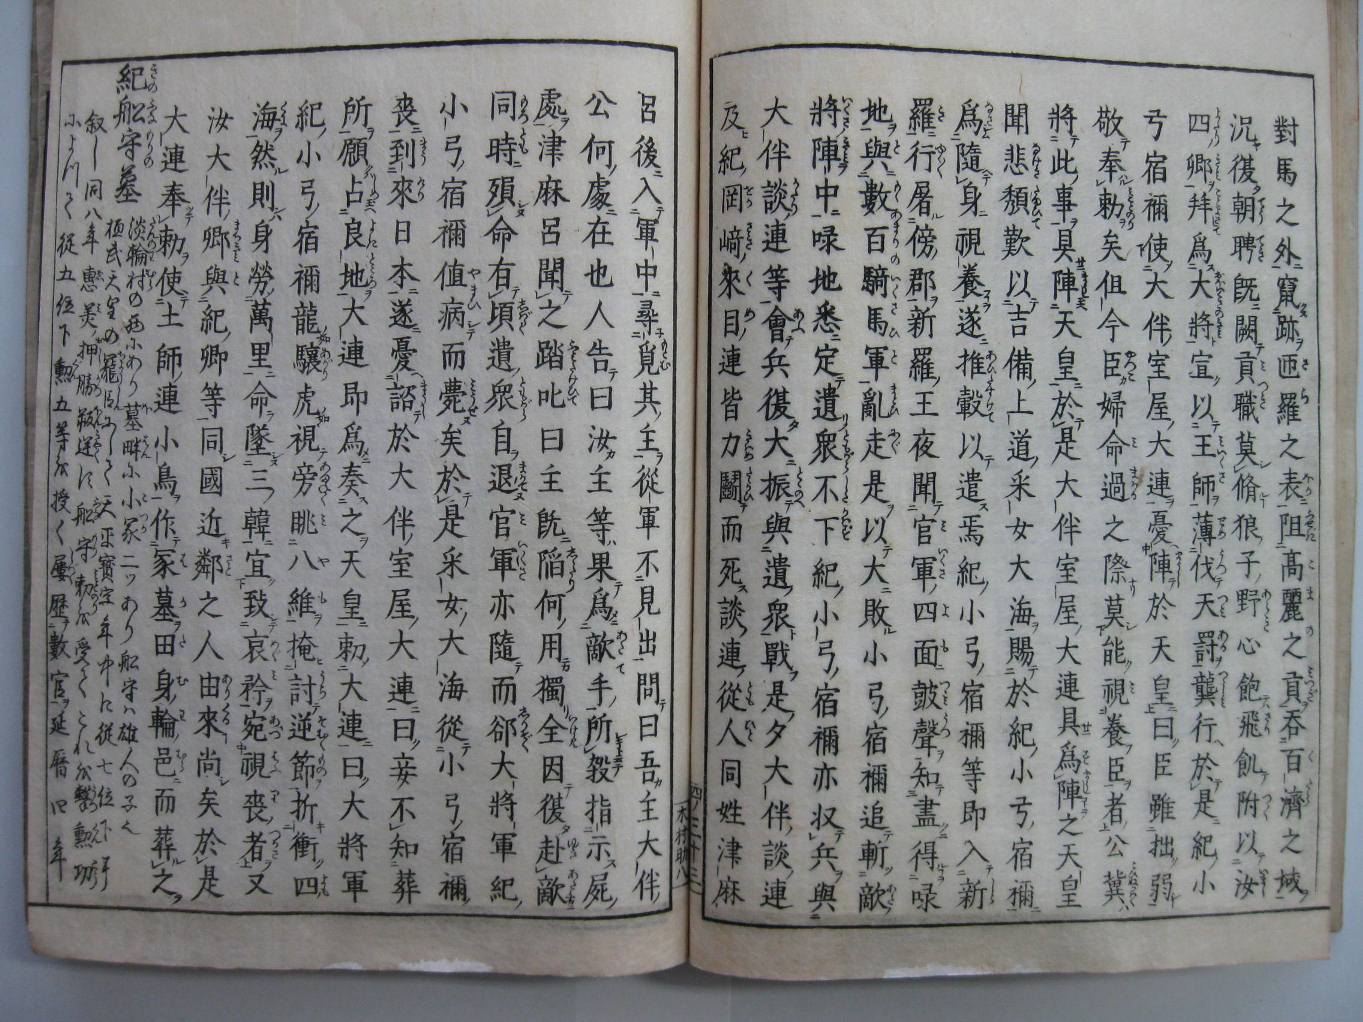 對馬之外竄跡匝羅之表阻高麗之貢呑百濟之城
況復朝聘既闕貢職莫脩狼子野心飽飛飢附以汝
四卿拜爲大將宜以王師薄伐天罰龔行於是紀小
弓宿禰使大伴室屋大連憂陳於天皇曰臣雖拙弱
敬奉勅矣但今臣婦命過之際莫能視養臣者公冀
將此事具陳天皇於是大伴室屋大連具爲陳之天皇
聞悲頽歎以吉備上道采女大海賜於紀小弓宿禰
爲隨身視養遂推轂以遣焉紀小弓宿禰等即入新
羅行屠傍郡新羅王夜聞官軍四面鼓聲知盡得㖨
地與數百騎馬軍亂走是以大敗小弓宿禰追斬敵
將陣中㖨地悉定遺衆不下紀小弓宿禰亦収兵與
大伴談連等會兵復大振與遺衆戰是夕大伴談連
及紀岡﨑來目連皆力鬪而死談連從人同姓津麻
呂後入軍中尋覓其主從軍不見出問曰吾主大伴
公何處在也人告曰汝主等果爲敵手所殺指示屍
處津麻呂聞之踏叱曰主既陷何用獨全因復赴敵
同時殞命有頃遺衆自退官軍亦隨而郤大將軍紀
小弓宿禰値病而薨矣於是采女大海從小弓宿禰
喪到來日本遂憂諮於大伴室屋大連曰妾不知葬
所願占良地大連即爲奏之天皇勅大連曰大將軍
紀小弓宿禰龍驤虎視旁眺八維掩討逆節折衝四
海然則身勞萬里命墜三韓宜致哀矜宛視喪者又
汝大伴卿與紀卿等同國近鄰之人由來尚矣於是
大連奉勅使土師連小鳥作冢墓田身輪邑而葬之
紀船守墓 淡輪村の西にあり墓畔に小冢二ツあり船守ハ雄人の子也
桓武天皇の寵臣にして天平寶字年中に従七位下に
叙し同八年惠美押勝叛逆に船守勅を受てこれを撃つ勲功
によつて従五位下勲五等を授く屢歴數官延曆四年
四ノ三十三
木村助八